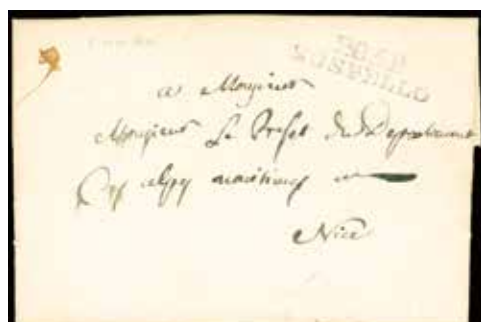 SOSPELLO
a Monsieur
Monsieur Le Prefet du Departement
Des alpes maritimes a
Nice